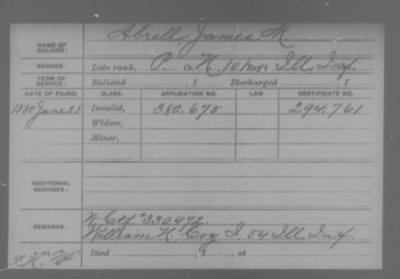 NAME OF SOLDIER: Abrell, James M.
SERVICE: Late rank, P. Co. K, 101 Reg't Ill. Inf.
TERM OF SERVICE: Enlisted , 1 Discharged , 1
DATE OF FILING. CLASS. APPLICATION NO. LAW. CERTIFICATE NO.
1880 June 21 Invalid, 380.675 294,761
Widow,
Minor,
ADDITIONAL SERVICES:
REMARKS: W. Ctf #330472.
William H. Co I. 54 Ill. Inf
Died , 1 , at